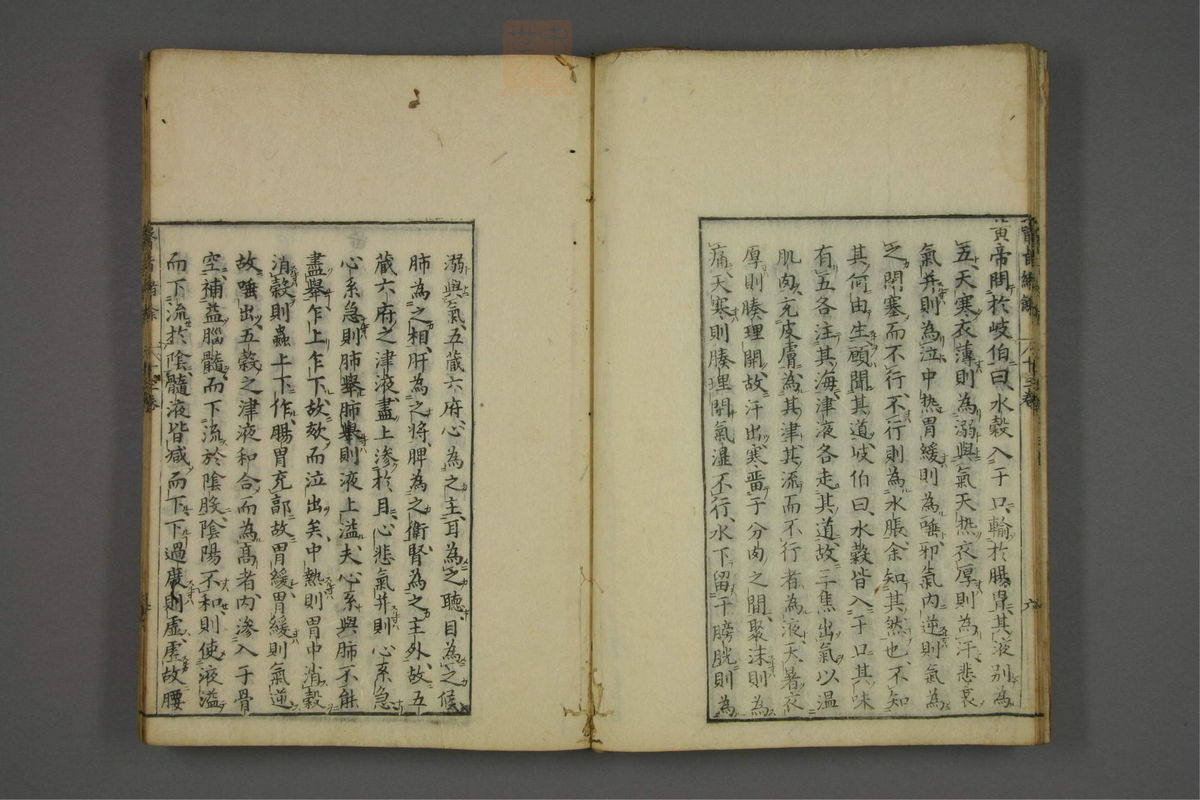 黄帝問於岐伯曰水穀入于口輸於腸胃其液別為
五天寒衣薄則為溺與氣天热衣厚則為汗悲哀
氣并則為泣中热胃緩則為唾邪氣内逆則氣為
之閉塞而不行不行則為水脹余知其然也不知
其何由生願聞其道岐伯曰水穀皆入于口其味
有五各注其海津液各走其道故三焦出氣以温
肌肉充皮膚為其津其流而不行者為液天暑衣
厚則腠理開故汗出寒畱于分肉之間聚沫則為
痛天寒則腠理閉氣濕不行水下留于膀胱則為
溺與氣五蔵六府心為之主耳為之聴目為之候
肺為之相肝為之将脾為之衛腎為之主外故五
蔵六府之津液盡上渗於目心悲氣并則心系急
心系急則肺舉肺舉則液上溢夫心系與肺不能
盡舉乍上乍下故欬而泣出矣中熱則胃中消穀
消穀則蟲上下作腸胃充郭故胃緩胃緩則氣逆
故唾出五穀之津液和合而為髙者内渗入于骨
空補益腦髓而下流於陰股陰陽不和則使液溢
而下流於陰髓液皆减而下下過度則虛虛故腰